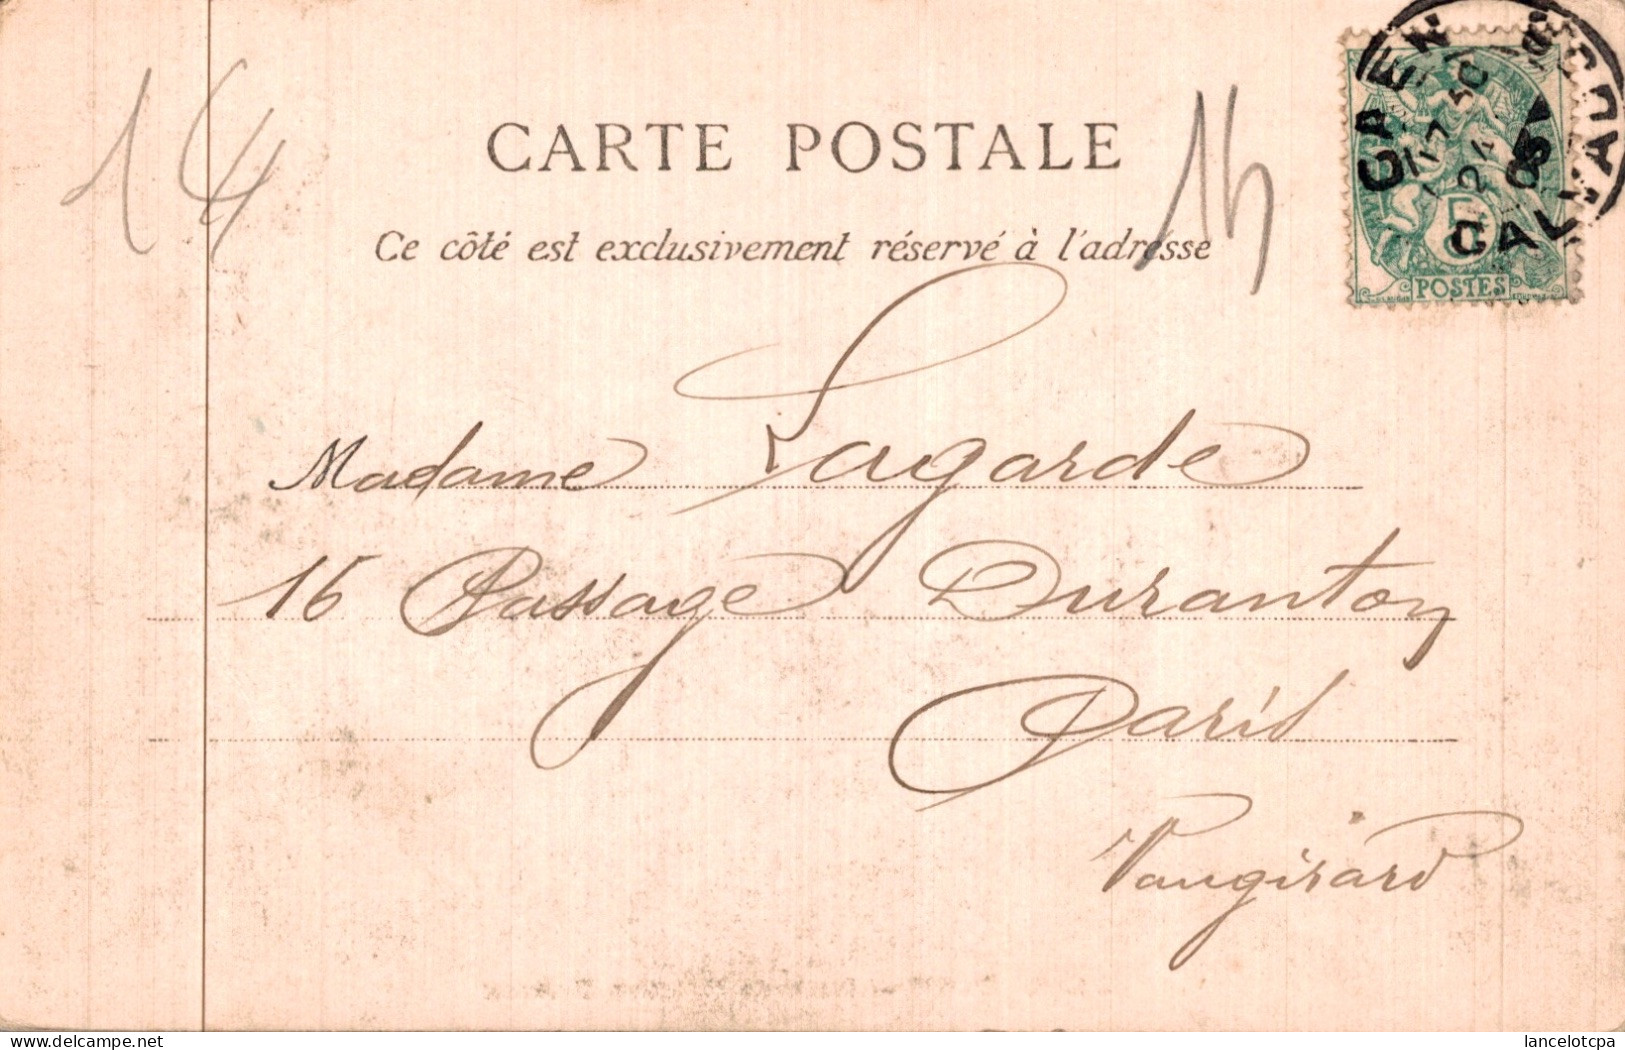 14
CARTE POSTALE
14
CAEN
CALVADOS
5c
POSTES
Ce côté est exclusivement réservé à l'adresse
Madame Lagarde
16 Passage Duranton
Paris
Vaugirard
lancelotcpa